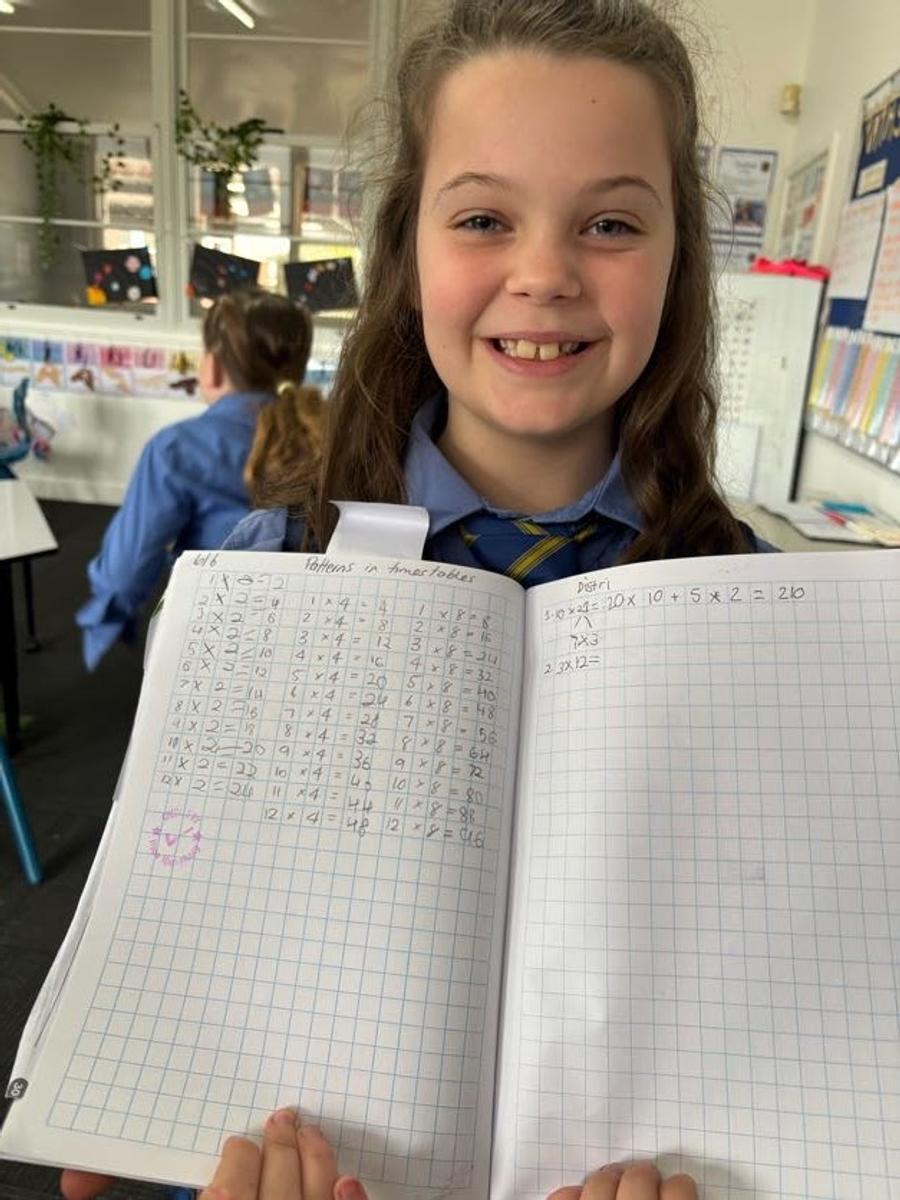 16/6 Patterns in timestables
1 x 2 = 2
2 x 2 = 4
3 x 2 = 6
4 x 2 = 8
5 x 2 = 10
6 x 2 = 12
7 x 2 = 14
8 x 2 = 16
9 x 2 = 18
10 x 2 = 20
11 x 2 = 22
12 x 2 = 24
1 x 4 = 4
2 x 4 = 8
3 x 4 = 12
4 x 4 = 16
5 x 4 = 20
6 x 4 = 24
7 x 4 = 28
8 x 4 = 32
9 x 4 = 36
10 x 4 = 40
11 x 4 = 44
12 x 4 = 48
1 x 8 = 8
2 x 8 = 16
3 x 8 = 24
4 x 8 = 32
5 x 8 = 40
6 x 8 = 48
7 x 8 = 56
8 x 8 = 64
9 x 8 = 72
10 x 8 = 80
11 x 8 = 88
12 x 8 = 96
30
Distri
1. 10 x 21 = 20 x 10 + 5 x 2 = 210
7 x 3
2. 3 x 12 =